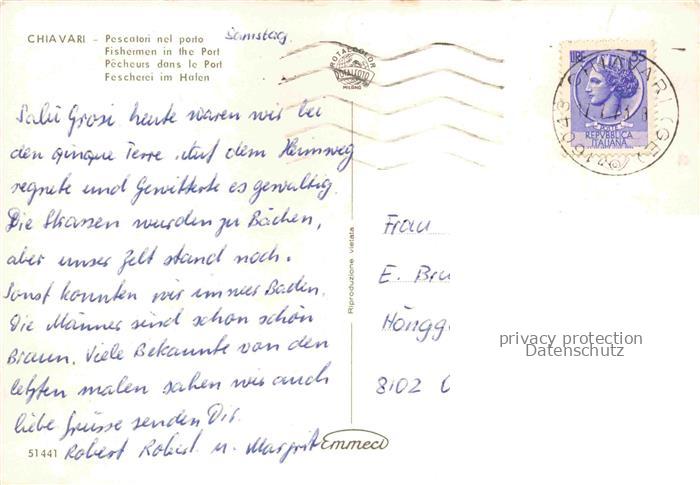 CHIAVARI - Pescatori nel porto
Fishermen in the Port
Pêcheurs dans le Port
Fescherei im Hafen
Samstag.
Salü Grosi, heute waren wir bei
den çinque Terre. Auf dem Heimweg
regnete und Gewitterte es gewaltig.
Die Strassen wurden zu Bächen,
aber unser Zelt stand noch.
Sonst konnten wir immer Baden.
Die Männer sind schon schön
Braun. Viele Bekannte von den
letzten malen sahen wir auch
liebe Grüsse senden Dir.
Robert Robert u. Margrit
51441
Emmeci
Riproduzione vietata
ROTALCOLOR
MILANO
LIRE 55
POSTE
REPVBBLICA
ITALIANA
16043 CHIAVARI (GE)
Frau
E. Bru
Höngg
8102
privacy protection
Datenschutz